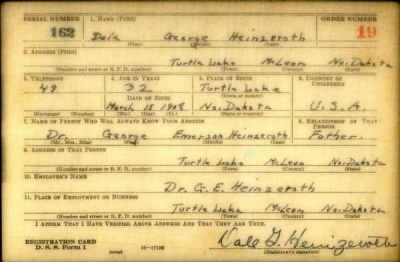 SERIAL NUMBER 1. NAME (Print) ORDER NUMBER
162 Dale George Heinzeroth 19
(First) (Middle) (Last)
2. ADDRESS (Print)
Turtle Lake McLean No. Dakota
(Number and street or R. F. D. number) (Town) (County) (State)
3. TELEPHONE 4. AGE IN YEARS 5. PLACE OF BIRTH 6. COUNTRY OF CITIZENSHIP
49 32 Turtle Lake
DATE OF BIRTH (Town or county)
March 15 1908 No. Dakota U.S.A.
(Exchange) (Number) (Mo.) (Day) (Yr.) (State or country)
7. NAME OF PERSON WHO WILL ALWAYS KNOW YOUR ADDRESS 8. RELATIONSHIP OF THAT PERSON
Dr. George Emerson Heinzeroth Father.
(Mr., Mrs., Miss) (First) (Middle) (Last)
9. ADDRESS OF THAT PERSON
Turtle Lake McLean No. Dakota
(Number and street or R. F. D. number) (Town) (County) (State)
10. EMPLOYER'S NAME
Dr. G. E. Heinzeroth
11. PLACE OF EMPLOYMENT OR BUSINESS
Turtle Lake McLean No. Dakota
(Number and street or R. F. D. number) (Town) (County) (State)
I AFFIRM THAT I HAVE VERIFIED ABOVE ANSWERS AND THAT THEY ARE TRUE.
REGISTRATION CARD
D. S. S. Form 1 Dale G. Heinzeroth
(Registrant's signature)